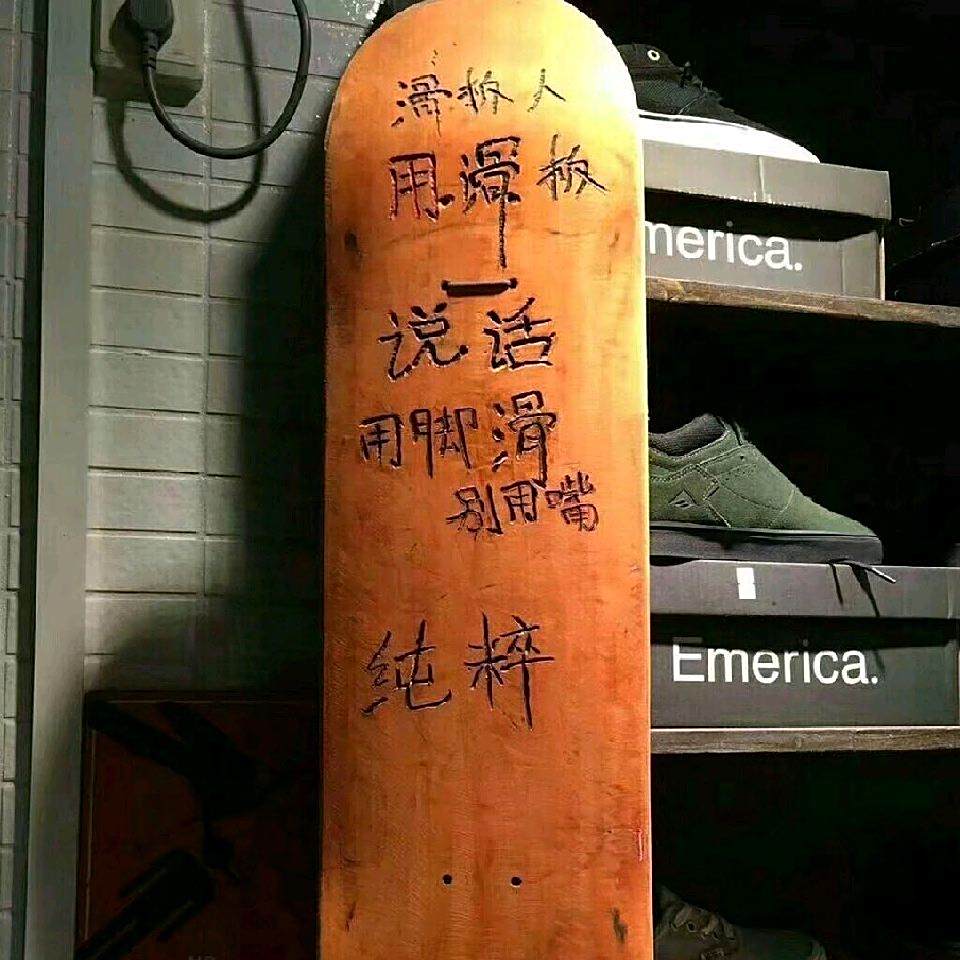 滑板人
用滑板
说话
用脚滑
别用嘴
纯粹
merica.
Emerica.